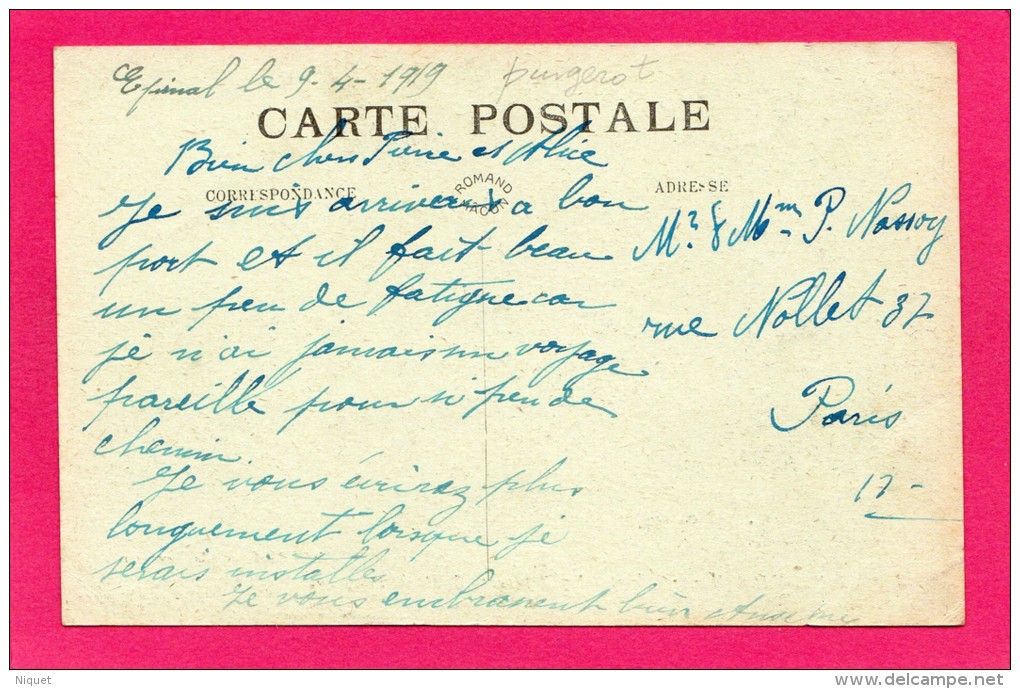 Epinal le 9-4-1919 purgerot
CARTE POSTALE
Bien chers Pierre et Alice
CORRESPONDANCE
ROMAND
ADRESSE
Je suis arriver a bon
port et il fait beau
un peu de fatigue car
je n'ai jamais un voyage
pareille pour si peu de
chemin.
Je vous écrirez plus
longuement lorsque je
serais installes
Je vous embrassent bien
Mr & Mme P. Nassoy
rue Nollet 37
Paris
17-
Niquet
delcampe.net